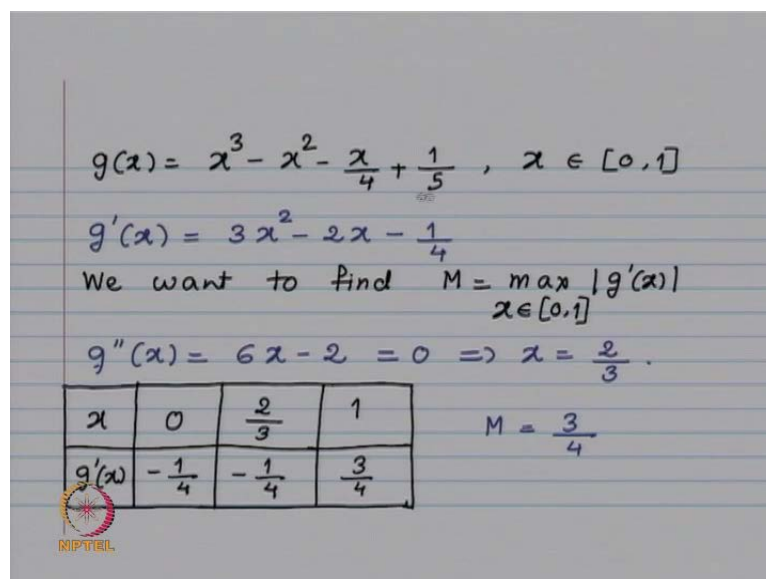 g(x) = x³ - x² - x/4 + 1/5 , x ∈ [0,1]
g'(x) = 3x² - 2x - 1/4
We want to find M = max |g'(x)|
x∈[0,1]
g"(x) = 6x - 2 = 0 => x = 2/3 .
x 0 2/3 1
M = 3/4
g'(x) -1/4 -1/4 3/4
NPTEL